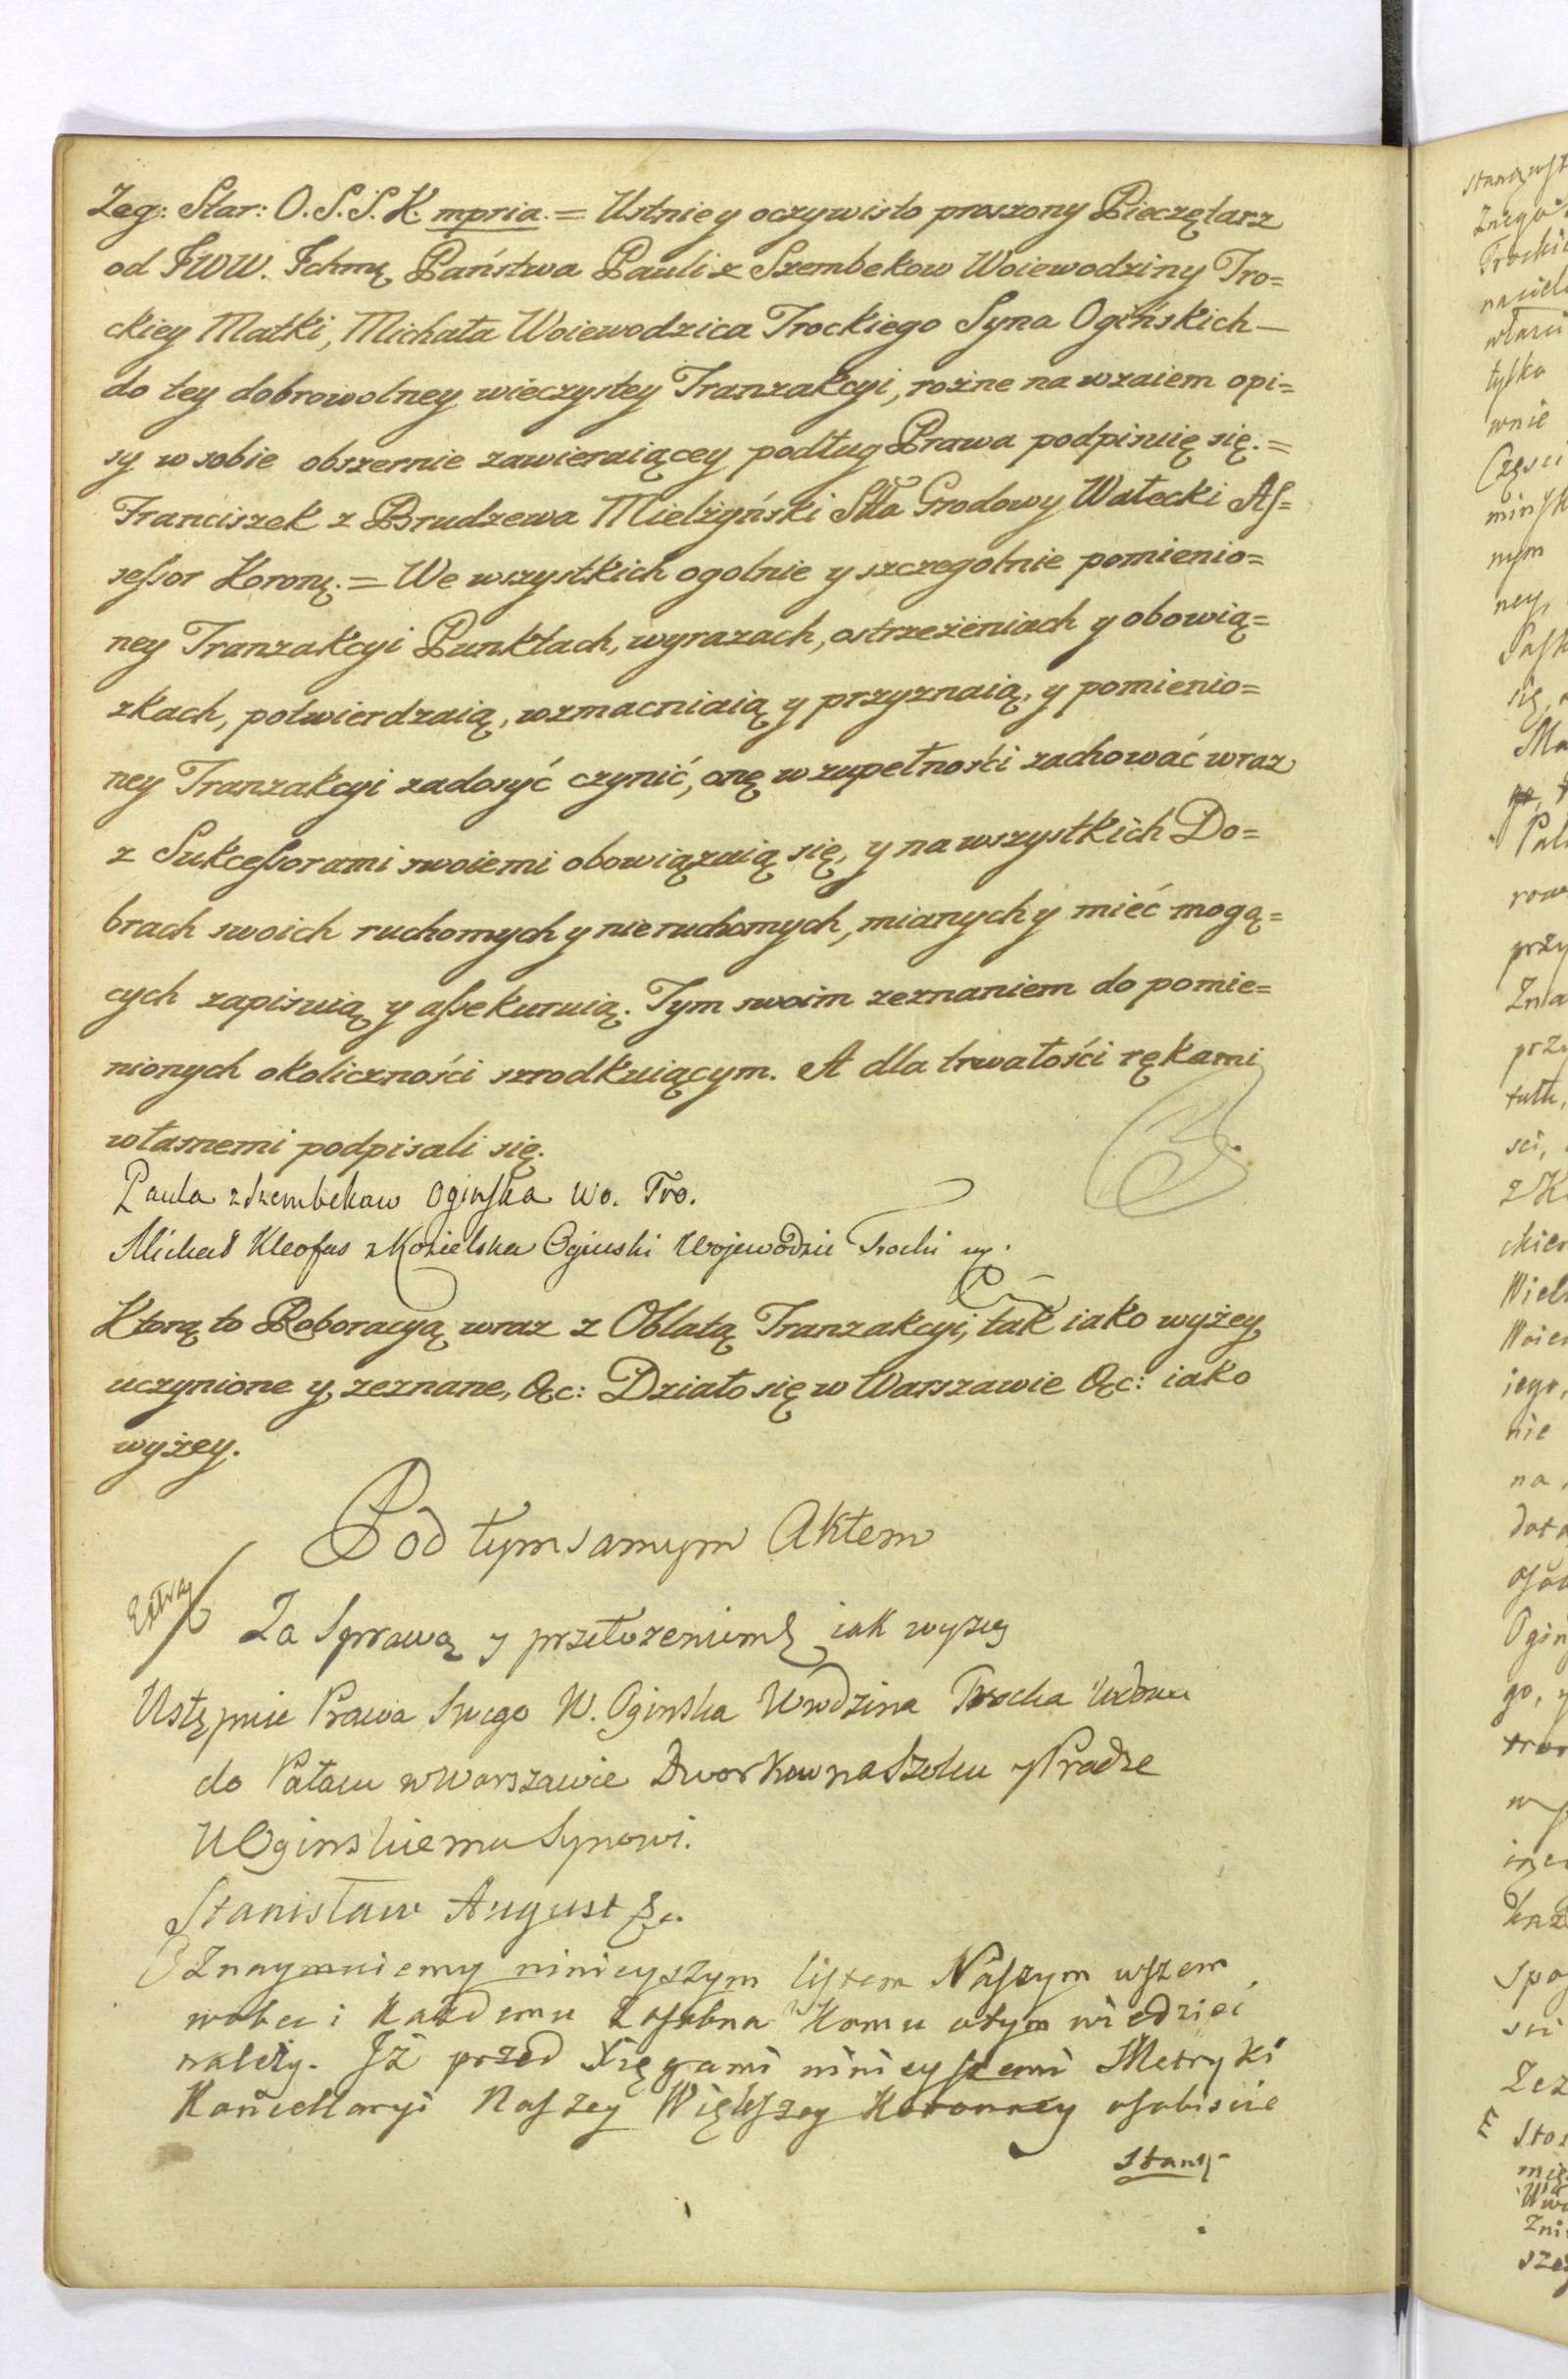 Zeg: Star: O.S.S.K. mpria. = Ustnie y oczywisto proszony Pieczętarz
od JWW. Ichmę Państwa Pauli z Szembekow Woiewodziny Tro=
ckiey Matki, Michała Woiewodzica Trockiego Syna Ogińskich —
do tey dobrowolney wieczystey Tranzakcyi, rożne na wzaiem opi=
sy w sobie obszernie zawieraiącey podług Prawa podpisuię się. =
Franciszek z Brudzewa Mielżyński Stta Grodowy Wałecki As=
sessor Koronę. = We wszystkich ogolnie y szczegolnie pomienio=
ney Tranzakcyi Punktach, wyrazach, ostrzeżeniach y obowią=
zkach, potwierdzaią, wzmacniaią y przyznaią, y pomienio=
ney Tranzakcyi zadosyć czynić, onę w zupełności zachować wraz
z Sukcessorami swoiemi obowiązuią się, y na wszystkich Do=
brach swoich ruchomych y nieruchomych, mianych y mieć mogą=
cych zapisuią y assekuruią. Tym swoim zeznaniem do pomie=
nionych okoliczności szrodkuiącym. A dla trwałości rękami
własnemi podpisali się.
Paula z Szembekow Oginska Wo. Tro.
Michał Kleofas z Kozielska Oginski Wojewodzic Trocki
Ktorą to Roboracyą wraz z Oblatą Tranzakcyi, tak iako wyżey
uczynione y zeznane, &c: Działo się w Warszawie &c: iako
wyżey.
Pod tym samym Aktem
Extra
Za Sprawą y przełożeniem &c iak wyżey
Ustępuie Prawa Swego W. Oginska Wwdzina Trocka Wdowa
do Pałacu w Warszawie Dworkow na Szolcu y Pradze
W Oginskiemu Synowi.
Stanisław August &c.
Oznaymuiemy ninieyszym listem Naszym wszem
wobec i Każdemu Zosobna Komu otym wiedzieć
należy. Iż przed Xięgami ninieyszemi Metryki
Kancellaryi Naszey Większey Koronney osobiscie
stanę-